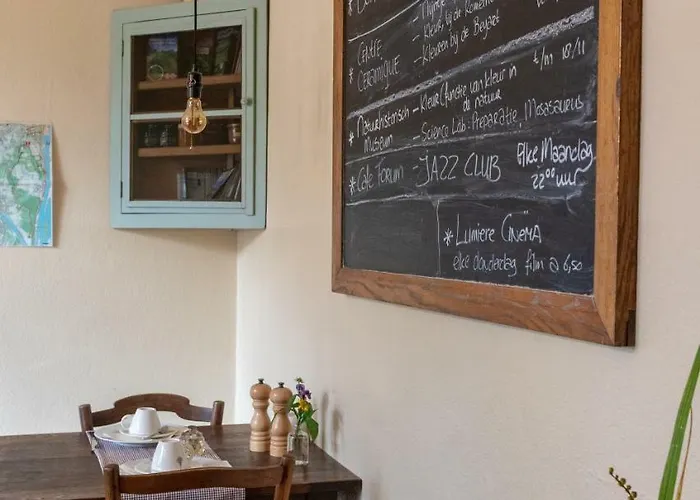 - Thijmen
- Kleur bij de Romeinen
* CENTRE CERAMIQUE
- Kleuren bij de Beyart
t/m 18/11
* Naturhistorisch Museum
- Kleur (functie van kleur in
de natuur
- Science Lab: Preparatie Mosasaurus
* Cafe Forum - JAZZ CLUB
elke Maandag
22:00 uur
* LUMIERE CINËMA
elke donderdag film @ 6,50